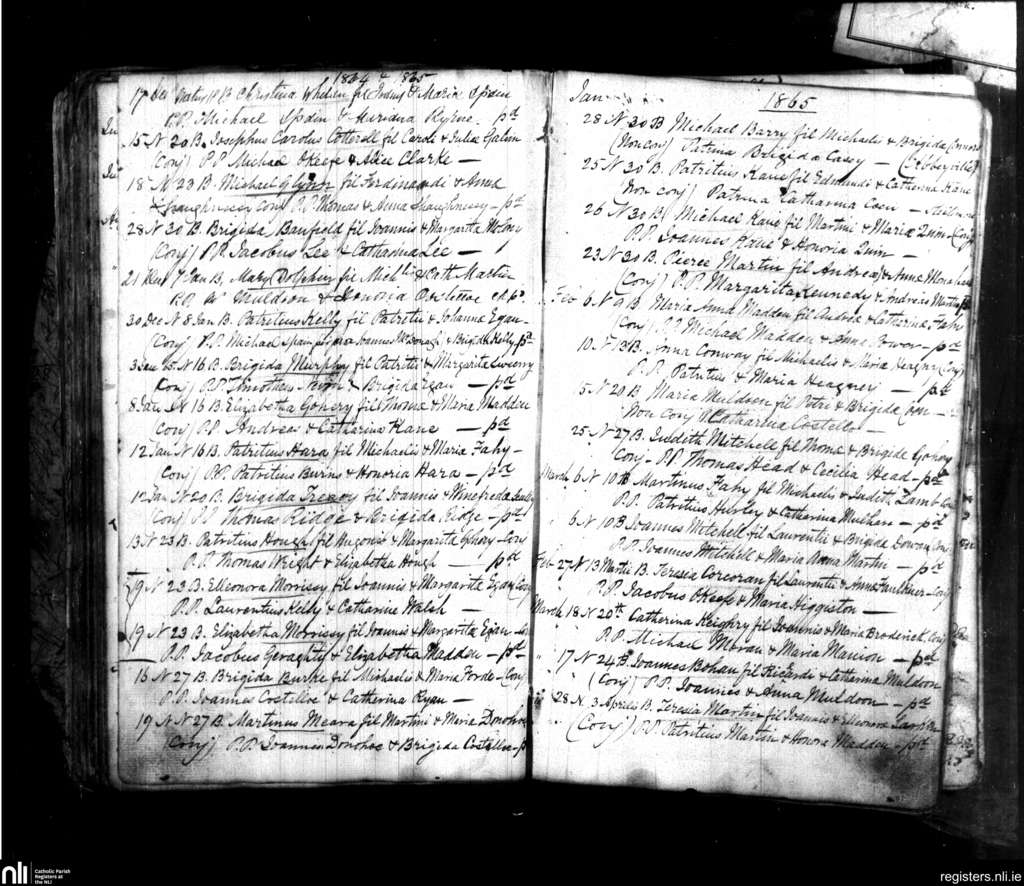 1864 & 1865
17 Dec Natus 18 B Christina Whelen fil Joannis & Maria Spdin
P.P. Michael Spdin & Byrne. pd
15 N 20 B. Josephus Carolus Cotterell fil Caroli & Julia Galvin
(Conj) P.P. Michael OKeefe & Alice Clarke —
18 N 23 B. Michael Glynn fil Ferdinandi & Anna
Shaughnessy Conj P.P. Thomas & Anna Shaughnessy — pd
28 N 30 B. Brigida Banfield fil Joannis & Margarita Molony
(Conj) P.P. Jacobus Lee & Catharina Lee —
21 Dec 7 Jan B. Mary Dolphin fil Michlis & Cath Martin
P.P. Wm Muldoon & Honoria Costelloe
30 Dec N 8 Jan B. Patritius Kelly fil Patritii & Johanna Egan —
(Conj) P.P. Michael Joannes McDonagh & Brigida Kelly pd
3 Jan N 16 B. Brigida Murphy fil Patritii & Margarita
Conj P.P. Timotheus & Brigida Egan — pd
8 Jan N 16 B. Elizabetha Gohery fil Thoma & Maria Madden
Conj P.P. Andreas & Catharina Kane — pd
12 Jan N 16 B. Patritius Hara fil Michaelis & Maria Fahy —
Conj P.P. Patritius Burns & Honoria Hara — pd
12 Jan N 20 B. Brigida Treacy fil Joannis & Winefreda
(Conj) P.P. Thomas Ridge & Brigida Ridge — pd
13 N 23 B. Patritius Hough fil Hugonis & Margarita Gohery Conj
P.P. Thomas Wright & Elizabetha Hough — pd
19 N 23 B. Elleonora Morrissy fil Joannis & Margarita Egan Conj
P.P. Laurentius Kelly & Catharina Walsh —
19 N 23 B. Elizabetha Morrissy fil Joannis & Margarita Egan
P.P. Jacobus Geraghty & Elizabetha Madden — pd
16 N 27 B. Brigida Burke fil Michaelis & Maria Forde — Conj
P.P. Joannes Costelloe & Catherina Ryan —
19 N 27 B. Martinus Meara fil Martini & Maria Donohoe
(Conj) P.P. Joannes Donohoe & Brigida Costelloe — p
Jan
1865
28 N 30 B Michael Barry fil Michaelis & Brigida
(Non Conj) Patrina Brigida Casey — (Abbeyville)
25 N 30 B. Patritius Kane fil Edmundi & Catherina Kane
Non Conj) Patrina Catharina Coen —
26 N 30 B. Michael Kane fil Martini & Maria Quin — Conj
P.P. Joannes Kane & Honoria Quin —
23 N 30 B. Pierce Martin fil Andreas & Anna
(Conj) P.P. Margarita Kennedy & Andreas Martin pd
Feb 6 N 9 B. Maria Anna Madden fil Andreae & Catherina Fahy
(Conj) P.P. Michael Madden & Anna Power — pd
10 N 13 B. Anna Conway fil Michaelis & Maria Heagney (Conj)
P.P. Patritius & Maria Heagney — pd
15 N 20 B Maria Muldoon fil Petri & Brigida
Non Conj P. Catharina Costello —
25 N 27 B. Judith Mitchell fil Thoma & Brigida Gohery
Conj — P.P. Thomas Head & Cecilia Head — pd
March 6 N 10 B Martinus Fahy fil Michaelis & Judith Lamb
P.P. Patritius Hurley & Catharina Mulhare — pd
6 N 10 B Joannes Mitchell fil Laurentii & Brigida
P.P. Joannes Mitchell & Maria Anna Martin — pd
Feb 27 N 13 Martii B. Teresia Corcoran fil Laurentii & Anna Faulkner — Conj
P.P. Jacobus OKeefe & Maria Higgiston —
March 18 N 20th Catherina Keighry fil Joannis & Maria Broderick Conj
P.P. Michael Moran & Maria Manion — pd
17 N 24 B. Joannes Bohan fil Ricardi & Catharina Muldoon
(Conj) P.P. Joannes & Anna Muldoon — pd
28 N. 3 Aprilis B. Teresia Martin fil Joannis & Elleonora
(Conj) P.P. Patritius Martin & Honora Madden — pd
nli
Catholic Parish
Registers at
the NLI
registers.nli.ie